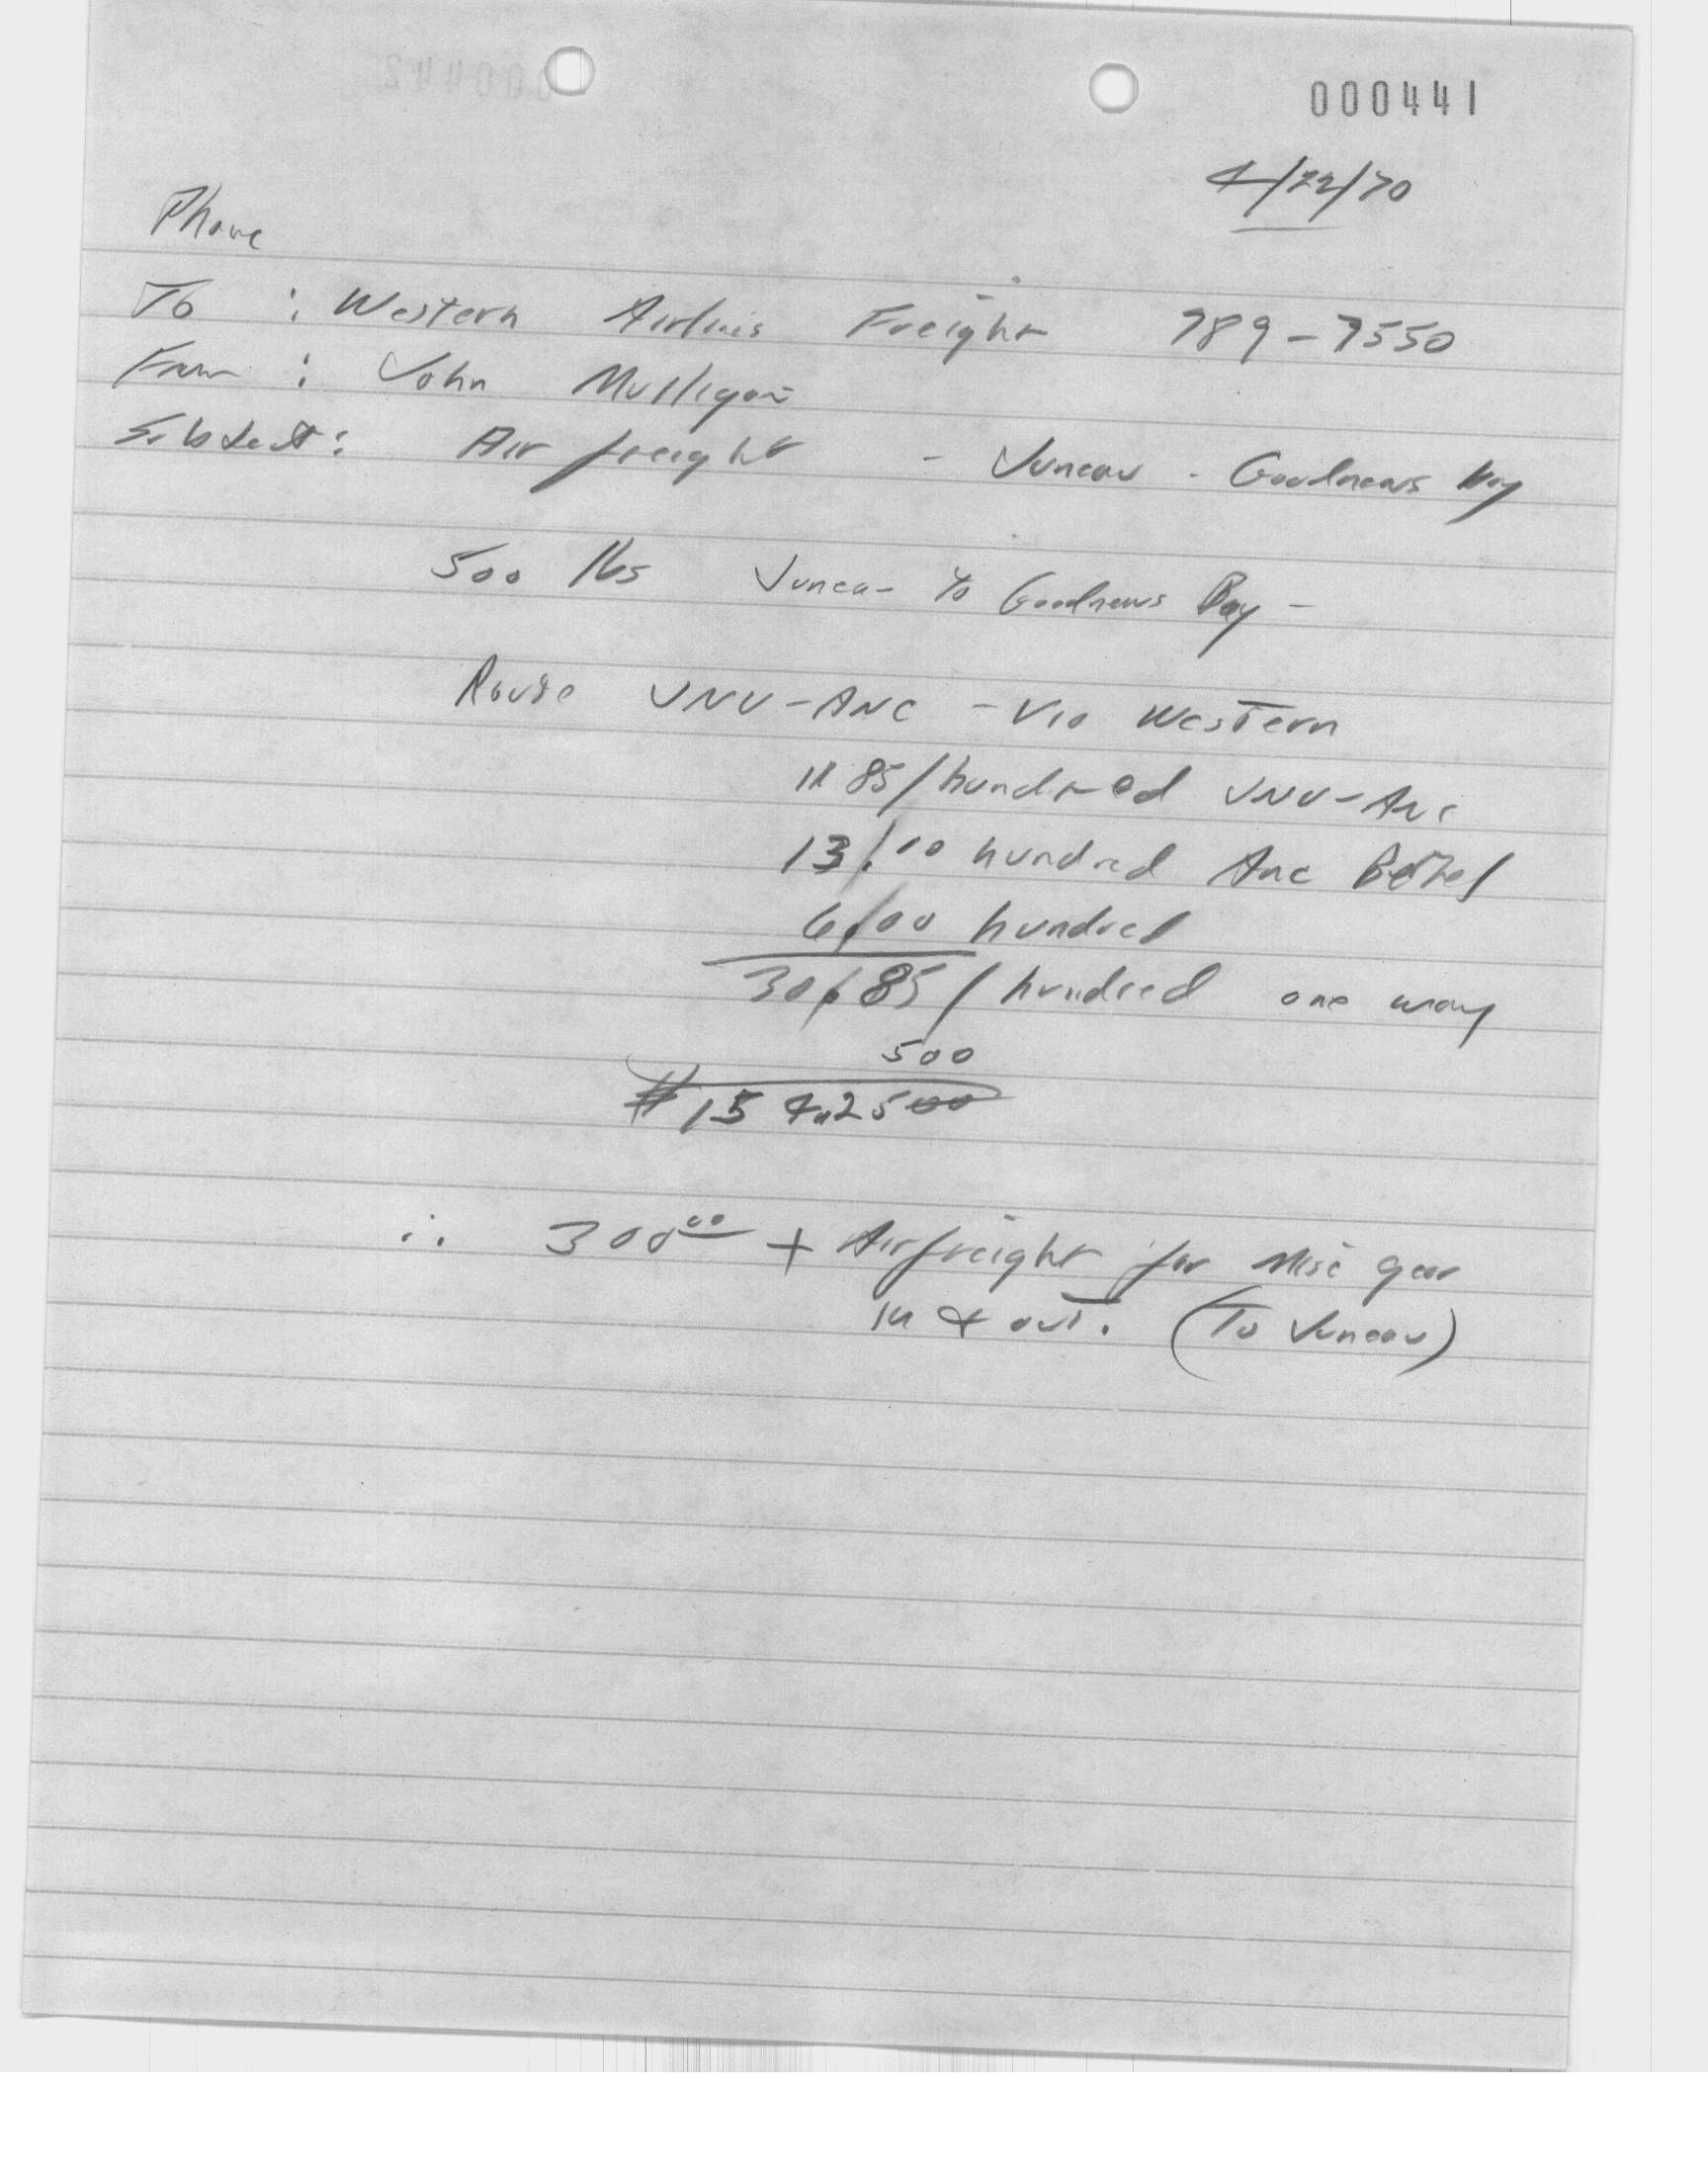 000442
000441
4/22/70
Phone
To : Western Airlines Freight 789-7550
From : John Mulligan
Subject : Air freight - Juneau - Goodnews Bay
500 lbs Juneau to Goodnews Bay -
Route JNU-ANC - Via Western
11 85/hundred JNU-Anc
13.10 hundred Anc Bethel
6.00 hundred
30.85/hundred one way
500
$154.2500
∴ 300 00 + Airfreight for Misc gear
in & out. (To Juneau)